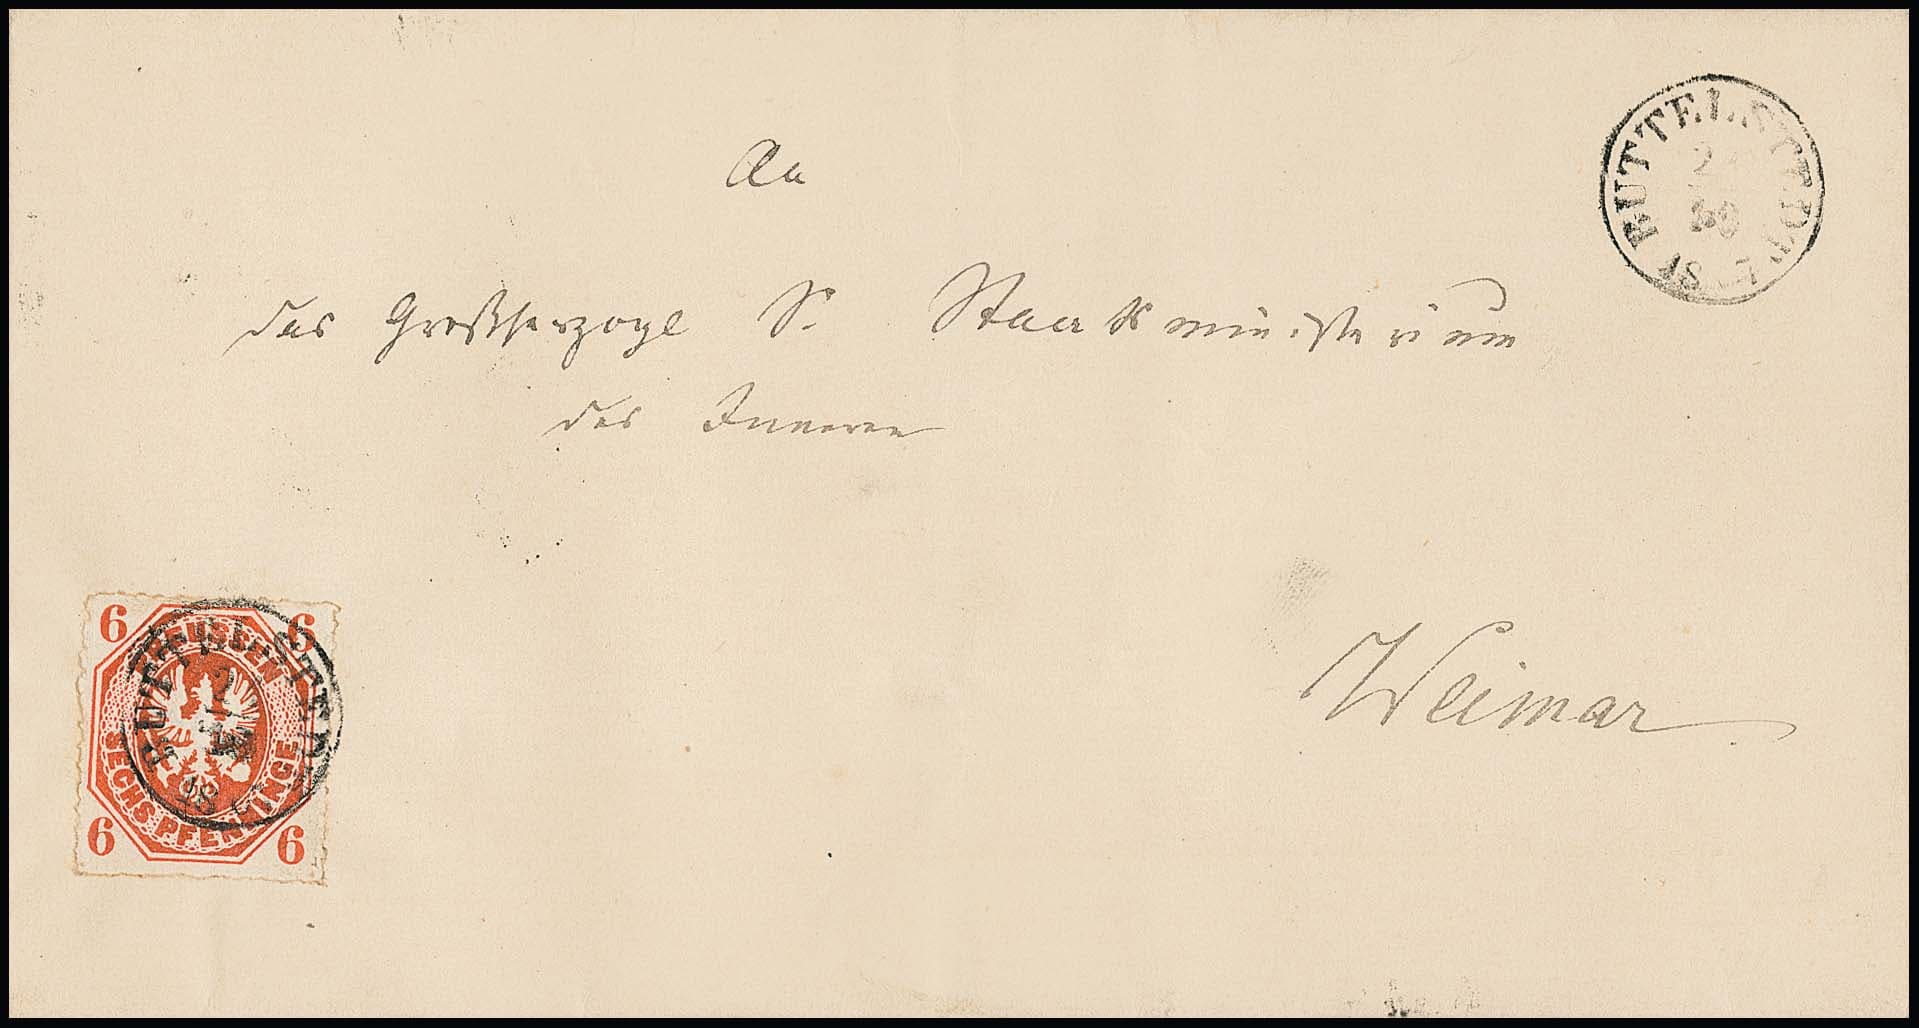 BUTTELSTEDT
2
An
das Großherzogl S. Staatsministerium
des Inneren
Weimar
6 6
PREUSSEN
SECHS PFENNINGE
6 6
BUTTELSTEDT
2